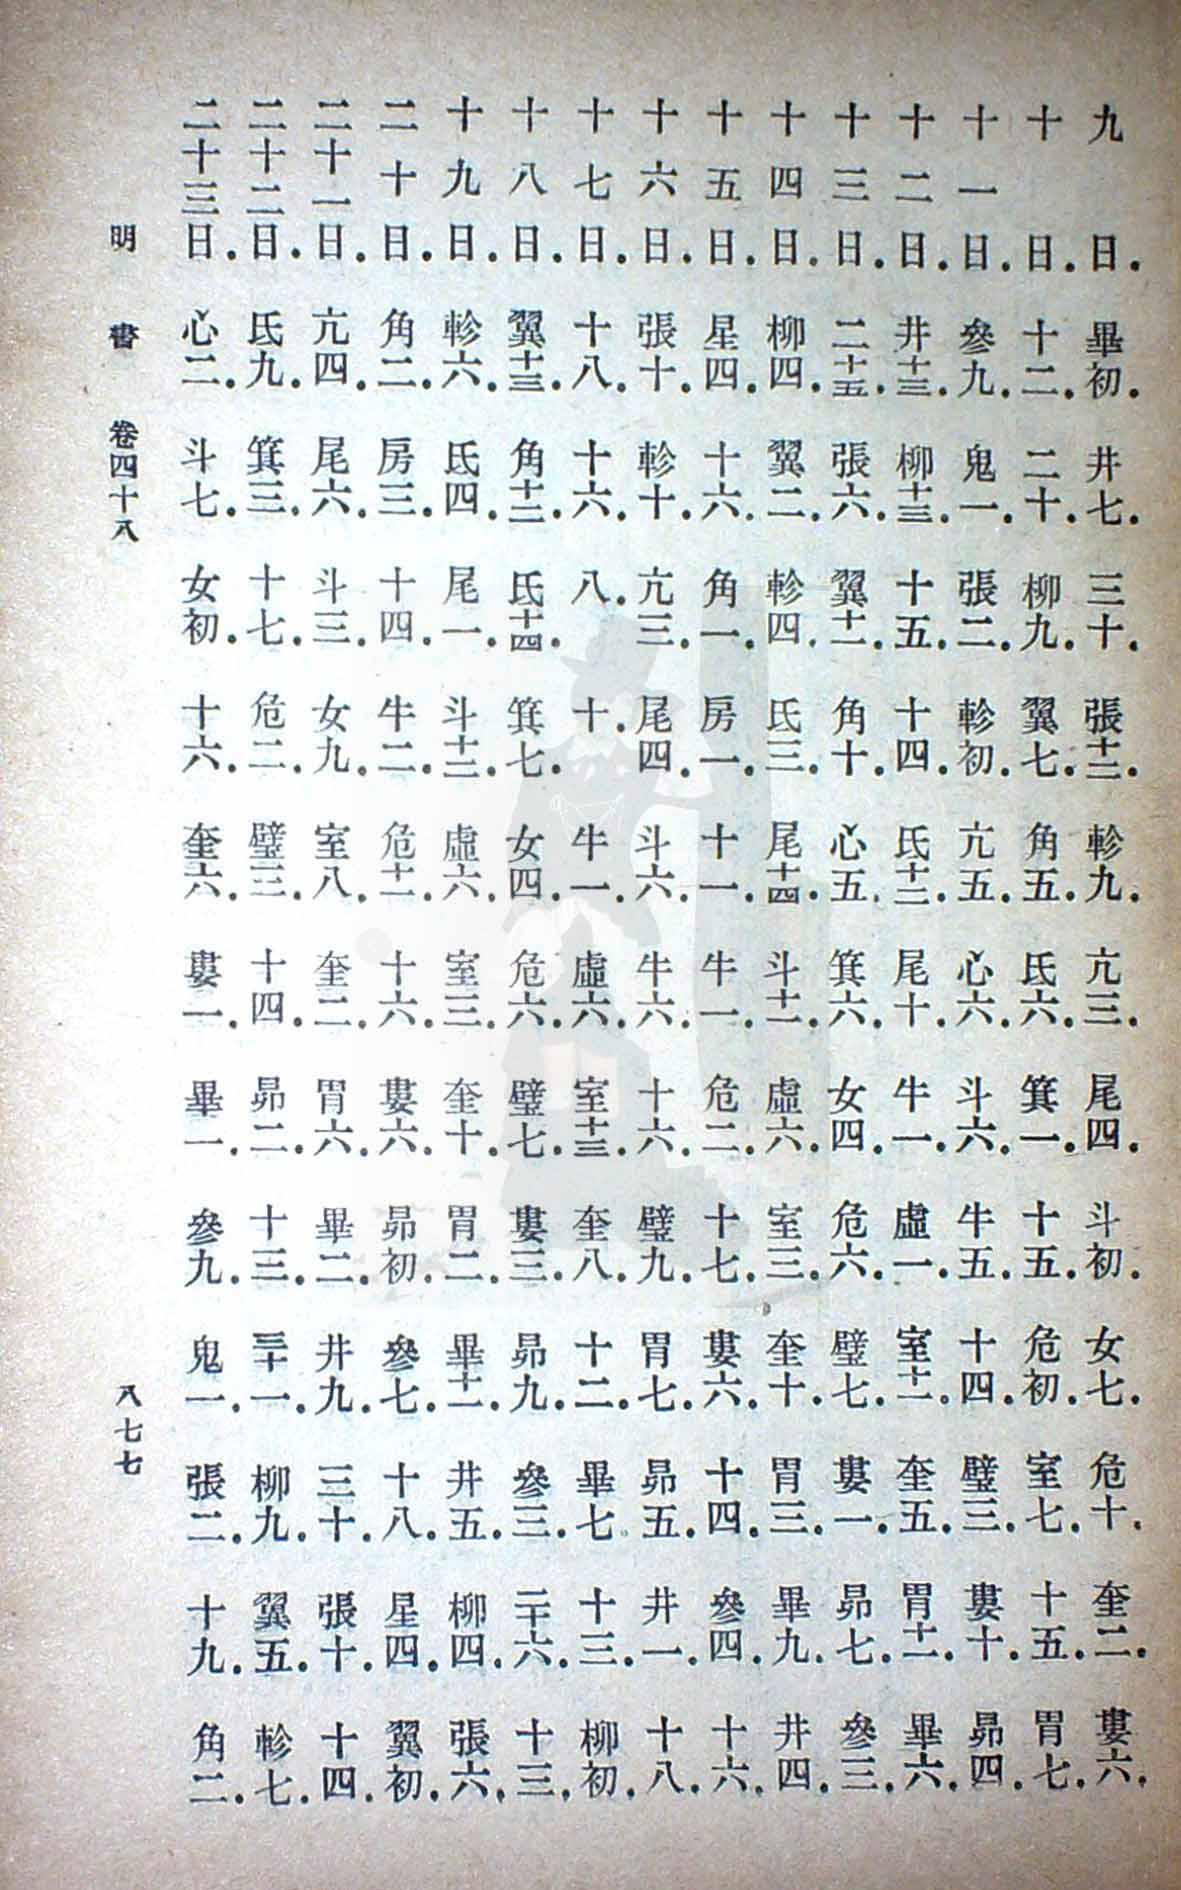 九日．畢初．井七．三十．張十二．軫九．亢三．尾四．斗初．女七．危十．奎二．婁六．
十日．十二．二十．柳九．翼七．角五．氐六．箕一．十五．危初．室七．十五．胃七．
十一日．參九．鬼一．張二．軫初．亢五．心六．斗六．牛五．十四．壁三．婁十．昴四．
十二日．井十三．柳十三．十五．十四．氐十二．尾十．牛一．虛一．室十一．奎五．胃十一．畢六．
十三日．二十五．張六．翼十一．角十．心五．箕六．女四．危六．壁七．婁一．昴七．參三．
十四日．柳四．翼二．軫四．氐三．尾十四．斗十一．虛六．室三．奎十．胃三．畢九．井四．
十五日．星四．十六．角一．房一．十一．牛一．危二．十七．婁六．十四．參四．十六．
十六日．張十．軫十．亢三．尾四．斗六．牛六．十六．壁九．胃七．昴五．井一．十八．
十七日．十八．十六．八．十．牛一．虛六．室十三．奎八．十二．畢七．十三．柳初．
十八日．翼十三．角十二．氐十四．箕七．女四．危六．壁七．婁三．昴九．參三．二十六．十三．
十九日．軫六．氐四．尾一．斗十二．虛六．室三．奎十．胃二．畢十一．井五．柳四．張六．
二十日．角二．房三．十四．牛二．危十一．十六．婁六．昴初．參七．十八．星四．翼初．
二十一日．亢四．尾六．斗三．女九．室八．奎二．胃六．畢二．井九．三十．張十．十四．
二十二日．氐九．箕三．十七．危二．壁三．十四．昴二．十三．三十一．柳九．翼五．軫七．
二十三日．心二．斗七．女初．十六．奎六．婁一．畢一．參九．鬼一．張二．十九．角二．
明書　卷四十八　八七七